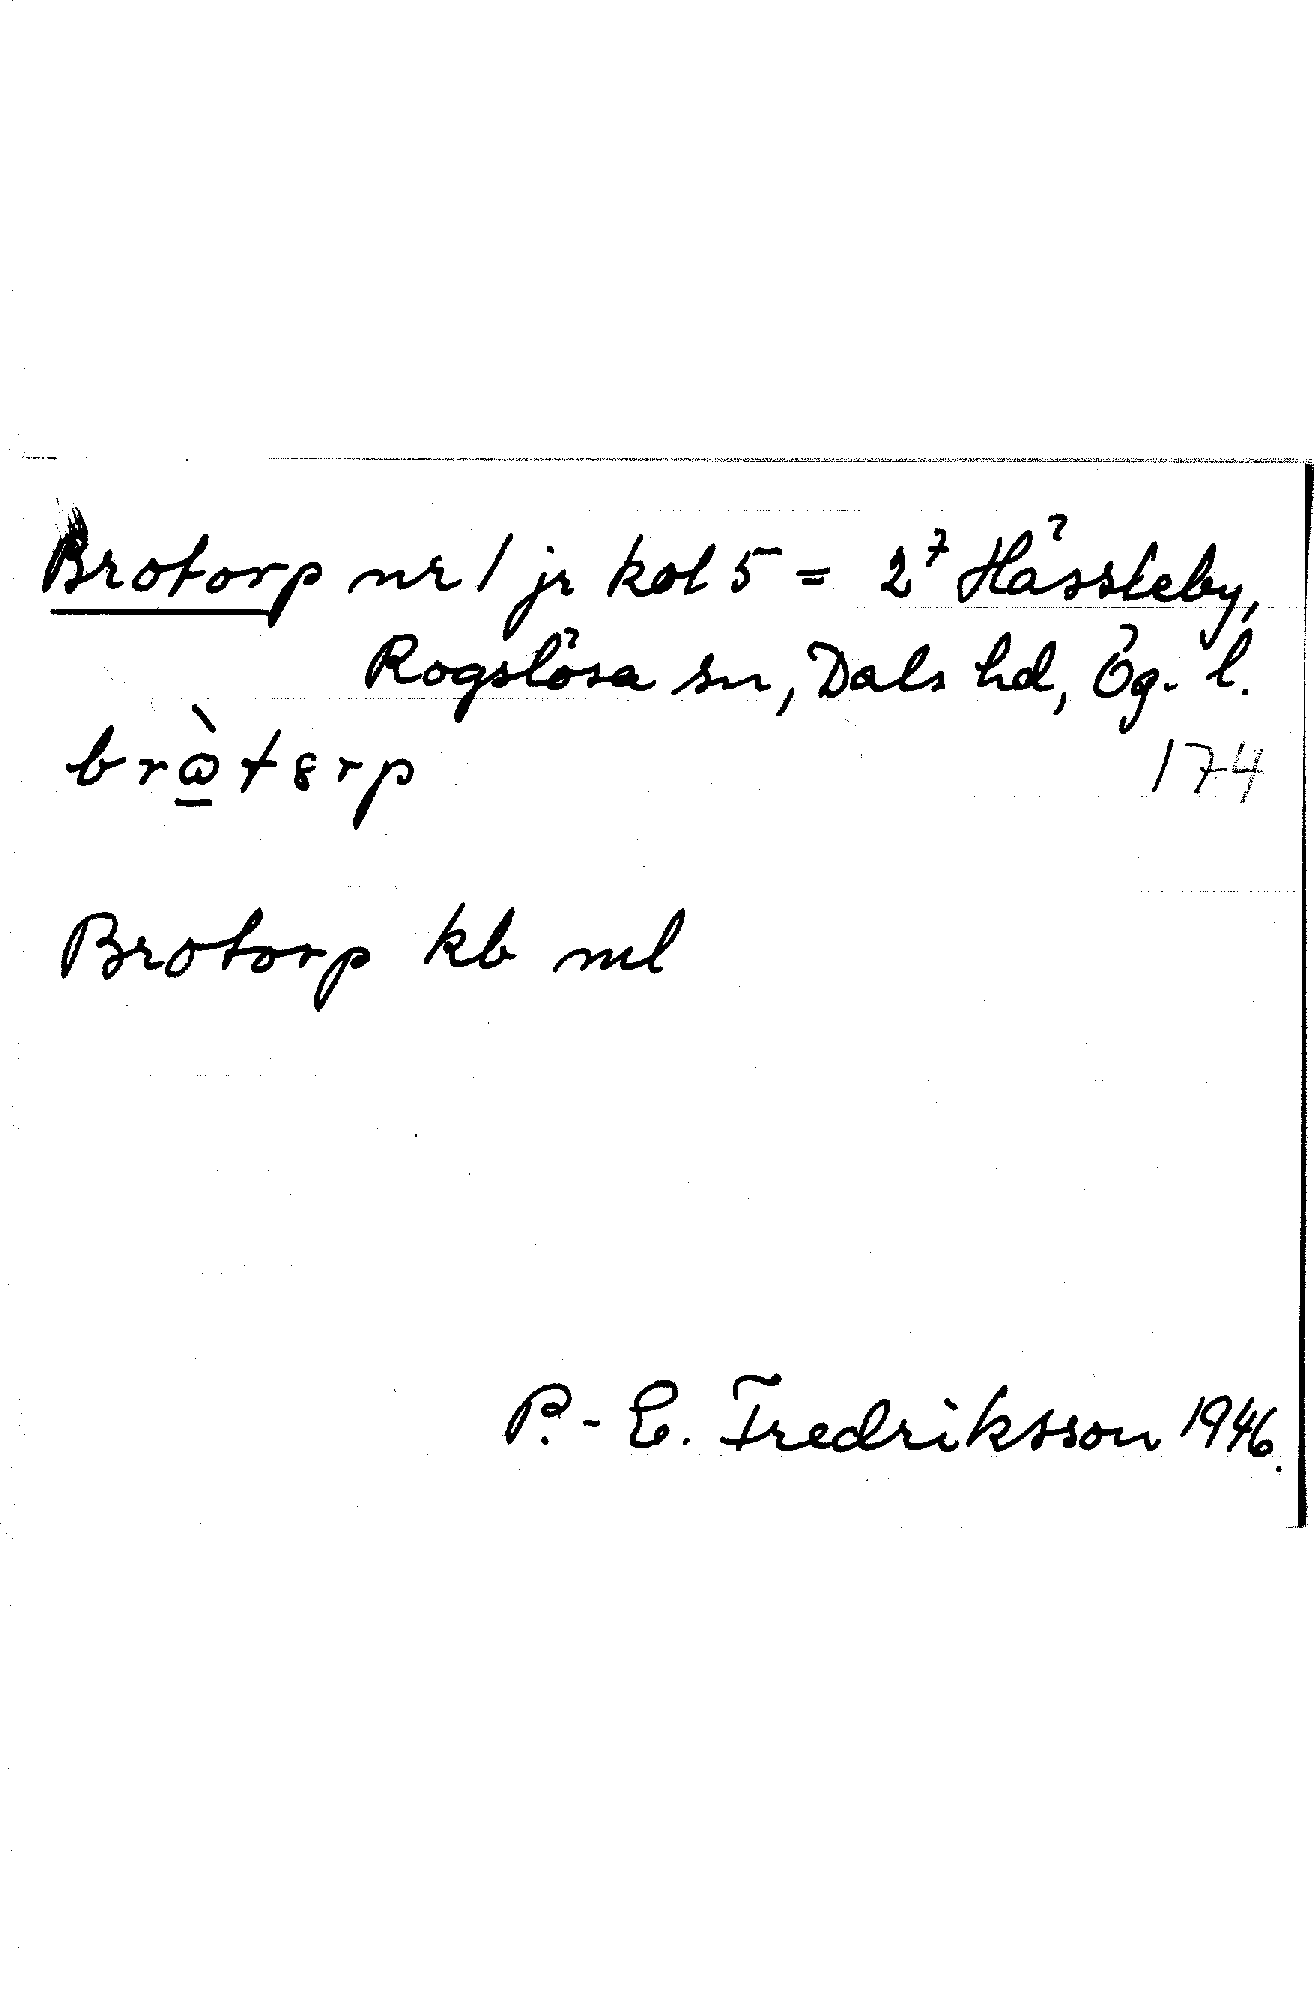 Brotorp nr 1 jr kol 5 = 2⁷ Hässleby,
Rogslösa sn, Dals hd, Ög. l.
174
Brotorp kb ml
P.-E. Fredriksson 1946.